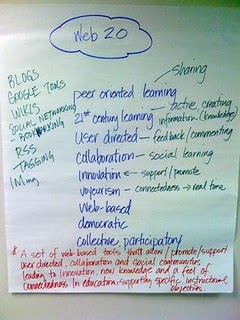 Web 2.0
BLOGS
GOOGLE TOOLS
WIKIS
SOCIAL NETWORKING
- BOOKMARKING
RSS
TAGGING
IMing
sharing
peer oriented learning
21st century learning — active, creating
information (knowledge)
User directed — feedback/commenting
Collaboration — social learning
Innovation ← support/promote
voyeurism — connectedness → real time
Web-based
democratic
collective, participatory
* A set of web-based tools that allow/promote/support
user directed, collaboration and social communities
leading to innovation, new knowledge and a feel of
connectedness. In education - supporting specific instructional
objectives